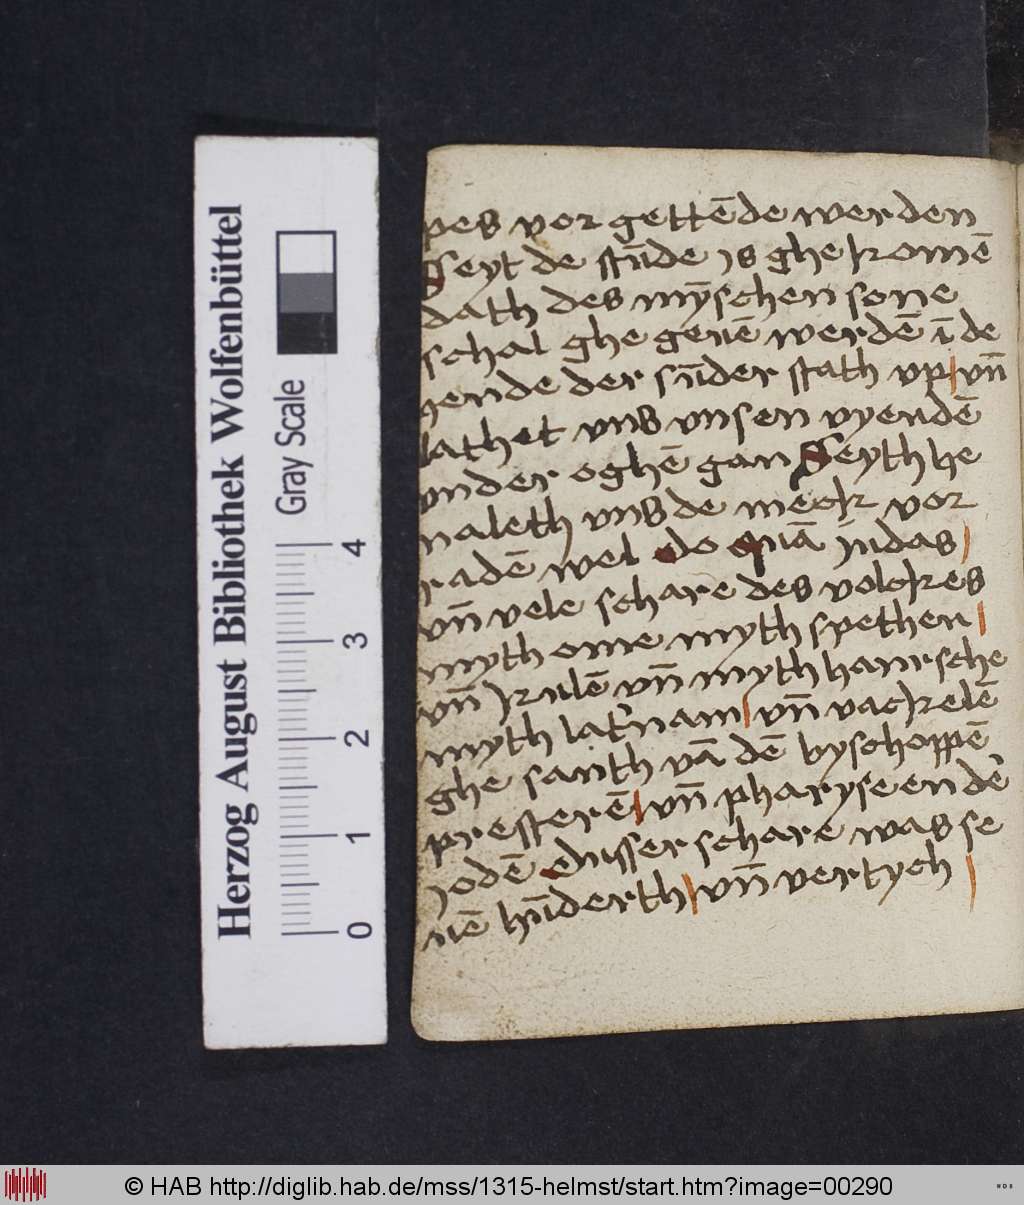 pes vor gettēde werden
Seyt de stūde is ghe komē
dath des mȳschen sone
schal ghe geuē werdē ī de
hende der sūder stath vp vn̄
lathet vns vnsen vyendē
vnder oghē gan Seyth he
naleth vns de meck vor
radē wel do quā iudas
vn̄ vele schare des volckes
myth ome myth spethen
vn̄ kulē vn̄ myth harnsche
myth lat'nam vn̄ vackelē
ghe santh vā dē byschoppē
presterē vn̄ pharyseen dē
iodē dusser schare was se
uē hūderth vn̄ vertych
Herzog August Bibliothek Wolfenbüttel
Gray Scale
0 1 2 3 4
© HAB http://diglib.hab.de/mss/1315-helmst/start.htm?image=00290